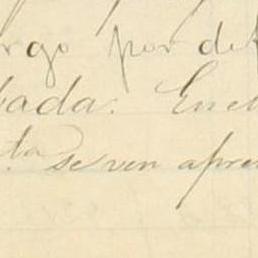 rgo por def
bada. En el
ta se ven apre